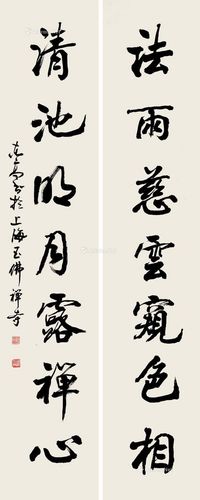 法雨慈雲窺色相
清池明月露禪心
於上海玉佛禪寺